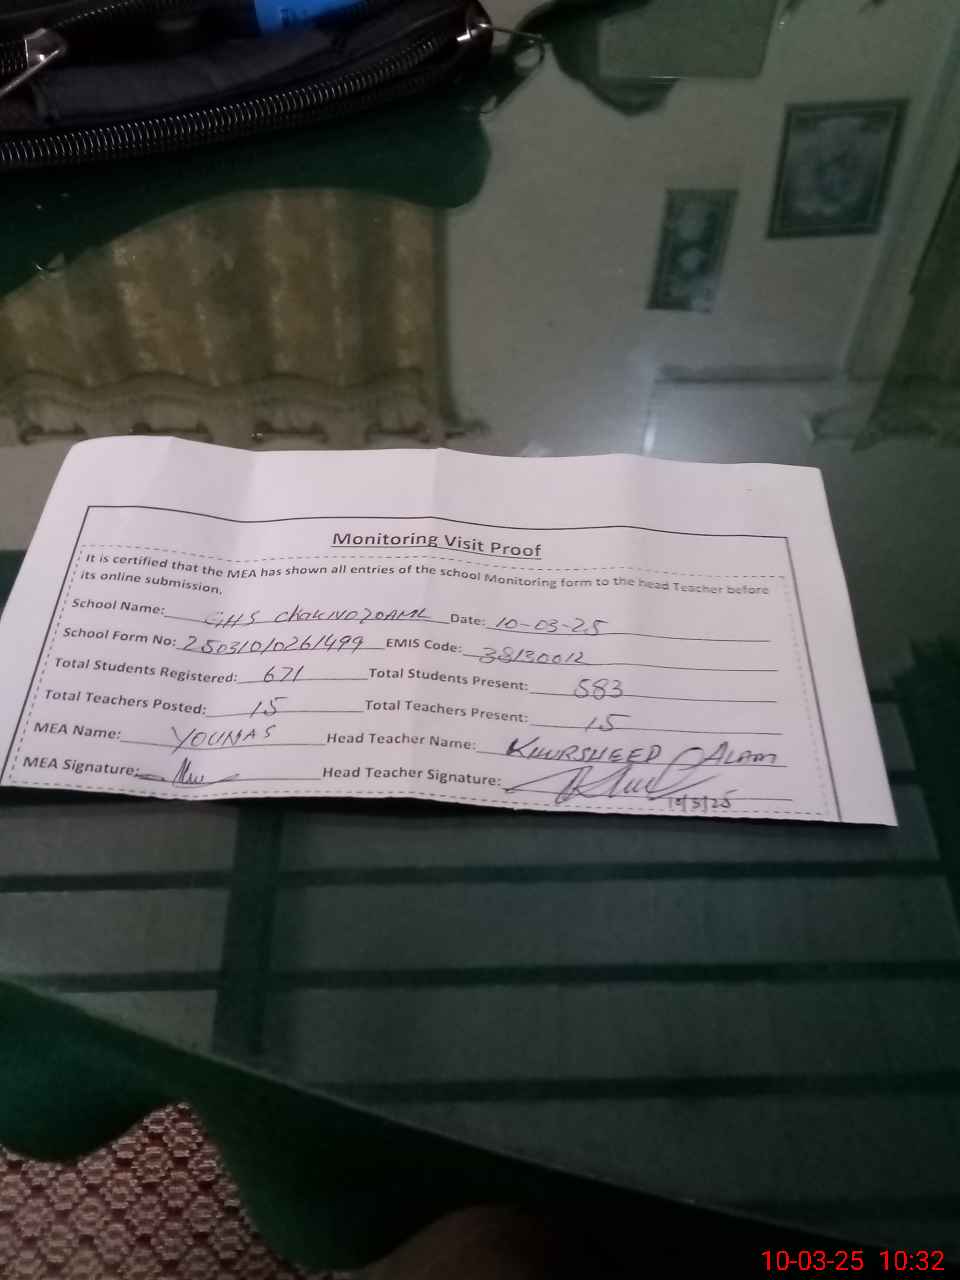 Monitoring Visit Proof
It is certified that the MEA has shown all entries of the school Monitoring form to the head Teacher before
its online submission.
School Name: GHS Chak No 20AML Date: 10-03-25
School Form No: 250310/0261499 EMIS Code: 38130012
Total Students Registered: 671 Total Students Present: 583
Total Teachers Posted: 15 Total Teachers Present: 15
MEA Name: YOUNAS Head Teacher Name: KHURSHEED ALAM
MEA Signature: Head Teacher Signature:
10/3/25
10-03-25 10:32